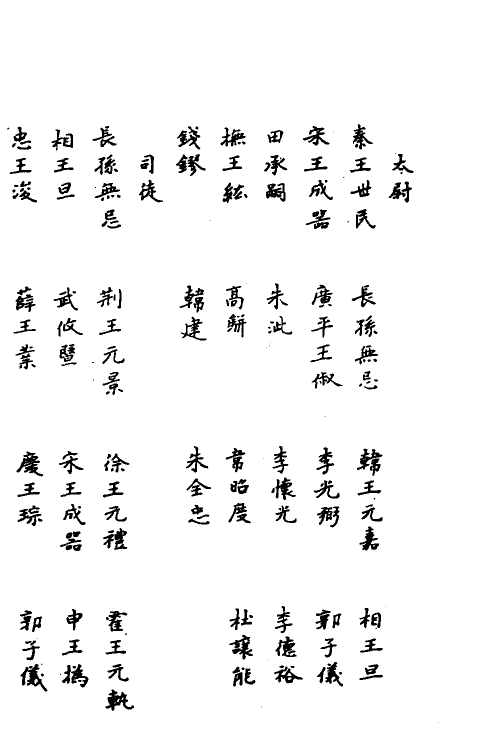 太尉
秦王世民 長孫無忌 韓王元嘉 相王旦
宋王成器 廣平王俶 李光弼 郭子儀
田承嗣 朱泚 李懷光 李德裕
撫王紘 高駢 韋昭度 杜讓能
錢鏐 韓建 朱全忠
司徒
長孫無忌 荆王元景 徐王元禮 霍王元軌
相王旦 武攸暨 宋王成器 申王撝
忠王浚 薛王業 慶王琮 郭子儀